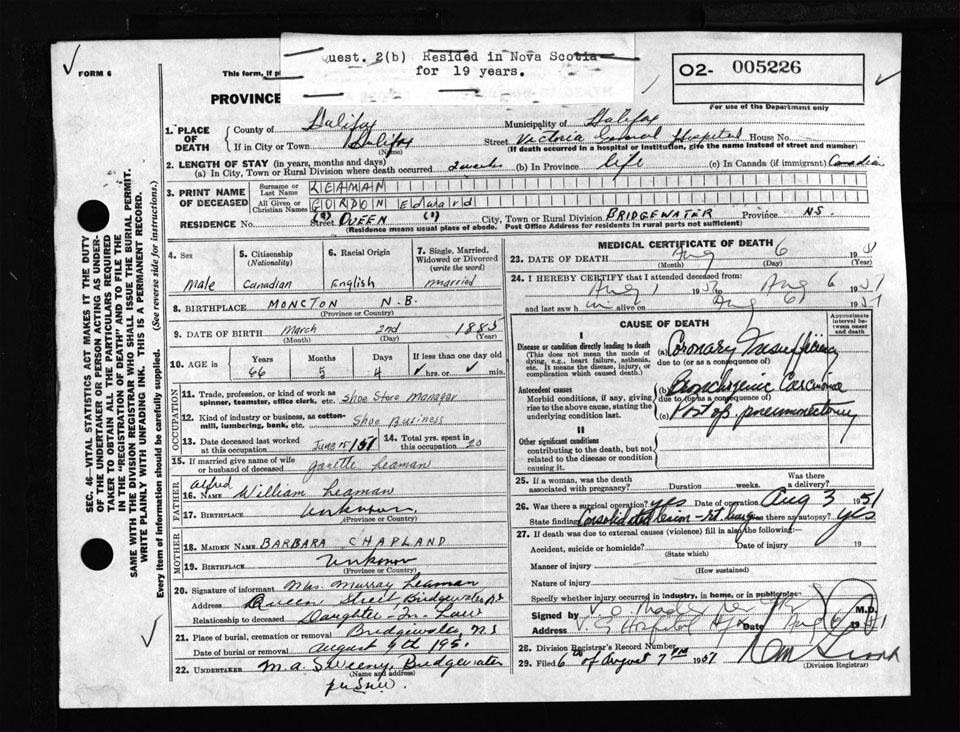 Quest. 2(b) Resided in Nova Scotia
for 19 years.
FORM 6
This form, if
O2- 005226
For use of the Department only
PROVINCE
1. PLACE OF DEATH
County of Halifax Municipality of Halifax
If in City or Town Halifax (Name) Street Victoria General Hospital House No.
(If death occurred in a hospital or institution, give the name instead of street and number)
2. LENGTH OF STAY (in years, months and days)
(a) In City, Town or Rural Division where death occurred 2 weeks (b) In Province life (c) In Canada (if immigrant) Canadian
3. PRINT NAME OF DECEASED
Surname or Last Name LEAMAN
All Given or Christian Names GORDON Edward
RESIDENCE No. Street QUEEN City, Town or Rural Division BRIDGEWATER Province N.S.
(Residence means usual place of abode. Post Office Address for residents in rural parts not sufficient)
4. Sex
Male
5. Citizenship (Nationality)
Canadian
6. Racial Origin
English
7. Single, Married, Widowed or Divorced (write the word)
Married
8. BIRTHPLACE MONCTON N.B.
(Province or Country)
9. DATE OF BIRTH March 2nd 1885
(Month) (Day) (Year)
10. AGE in Years Months Days If less than one day old
66 5 4 hrs. or min.
OCCUPATION
11. Trade, profession, or kind of work as spinner, teamster, office clerk, etc. Shoe Store Manager
12. Kind of industry or business, as cotton-mill, lumbering, bank, etc. Shoe Business
13. Date deceased last worked at this occupation June 15/51 14. Total yrs. spent in this occupation 20
15. If married give name of wife or husband of deceased Leaman
FATHER
16. Name Alfred William Leaman
17. BIRTHPLACE Unknown
(Province or Country)
MOTHER
18. MAIDEN NAME BARBARA CHAPLAND
19. BIRTHPLACE Unknown
(Province or Country)
20. Signature of informant Mrs. Murray Leaman
Address Queen Street Bridgewater N.S.
Relationship to deceased Daughter-In-Law
21. Place of burial, cremation or removal Bridgewater, N.S.
Date of burial or removal August 9th 1951
22. UNDERTAKER M.A. Sweeny, Bridgewater
(Name and address)
MEDICAL CERTIFICATE OF DEATH
23. DATE OF DEATH Aug 6 1951
(Month) (Day) (Year)
24. I HEREBY CERTIFY that I attended deceased from
Aug 1 1951 to Aug 6 1951
and last saw h im alive on Aug 6 1951
CAUSE OF DEATH
Approximate interval between onset and death
I
Disease or condition directly leading to death
(This does not mean the mode of dying, e.g., heart failure, asthenia, etc. It means the disease, injury, or complication which caused death.)
(a) Coronary Insufficiency
due to (or as a consequence of)
Antecedent causes
Morbid conditions, if any, giving rise to the above cause, stating the underlying condition last.
(b) Bronchogenic Carcinoma
due to (or as a consequence of)
(c) Post op. pneumonectomy
II
Other significant conditions
contributing to the death, but not related to the disease or condition causing it.
25. If a woman, was the death associated with pregnancy? Duration weeks. Was there a delivery?
26. Was there a surgical operation? yes Date of operation Aug 3 1951
State finding Consolidated lesion - rt. lung Was there an autopsy? Yes
27. If death was due to external causes (violence) fill in also the following:
Accident, suicide or homicide? Date of injury 19
(State which)
Manner of injury
(How sustained)
Nature of injury
Specify whether injury occurred in industry, in home, or in public place
Signed by M.D.
Address V. G. Hospital Hfx Date Aug 6 1951
28. Division Registrar's Record Number
29. Filed 6th of August 7 PM
(Division Registrar)
SEC. 46—VITAL STATISTICS ACT MAKES IT THE DUTY
OF THE UNDERTAKER OR PERSON ACTING AS UNDER-
TAKER TO OBTAIN ALL THE PARTICULARS REQUIRED
IN THE "REGISTRATION OF DEATH" AND TO FILE THE
SAME WITH THE DIVISION REGISTRAR WHO SHALL ISSUE THE BURIAL PERMIT.
WRITE PLAINLY WITH UNFADING INK. THIS IS A PERMANENT RECORD.
Every item of information should be carefully supplied. (See reverse side for instructions.)